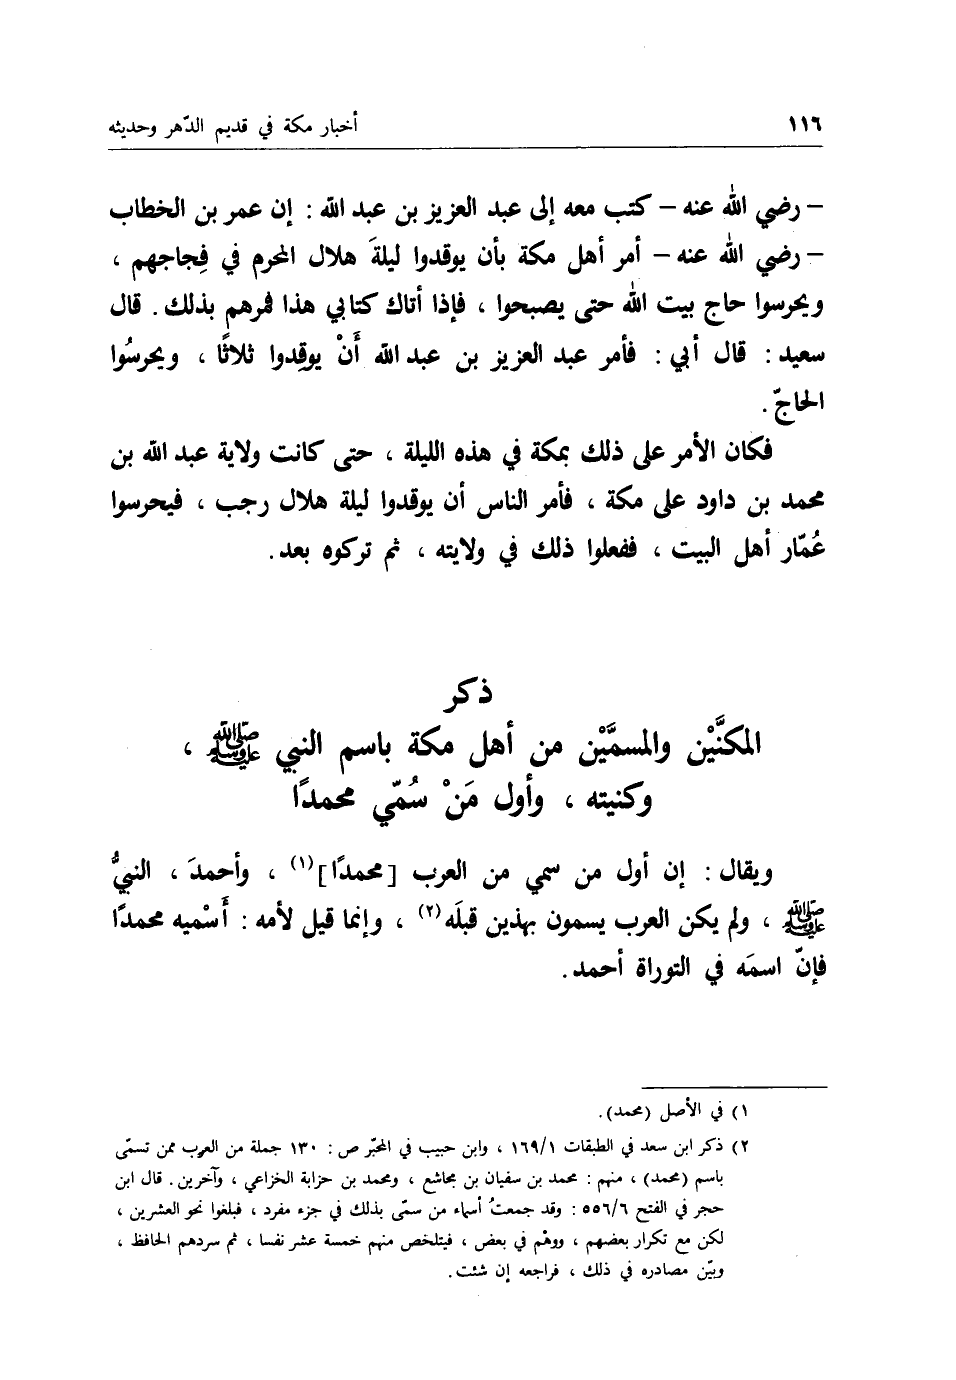 ١١٦ أخبار مكة في قديم الدّهر وحديثه
– رضي الله عنه – كتب معه إلى عبد العزيز بن عبد الله : إن عمر بن الخطاب
– رضي الله عنه – أمر أهل مكة بأن يوقدوا ليلةَ هلال المحرم في فِجاجهم ،
ويحرسوا حاج بيت الله حتى يصبحوا ، فإذا أتاك كتابي هذا فمرهم بذلك . قال
سعيد : قال أبي : فأمر عبد العزيز بن عبد الله أَنْ يوقِدوا ثلاثًا ، ويحرسُوا
الحاجّ .
فكان الأمر على ذلك بمكة في هذه الليلة ، حتى كانت ولاية عبد الله بن
محمد بن داود على مكة ، فأمر الناس أن يوقدوا ليلة هلال رجب ، فيحرسوا
عُمّار أهل البيت ، ففعلوا ذلك في ولايته ، ثم تركوه بعد .
ذكر
المكنَّيْن والمسمَّيْن من أهل مكة باسم النبي ﷺ ،
وكنيته ، وأول مَنْ سُمّي محمدًا
ويقال : إن أول من سمي من العرب [محمدًا](١) ، وأحمدَ ، النبيُّ
ﷺ ، ولم يكن العرب يسمون بهذين قبلَه(٢) ، وإنما قيل لأمه : أَسْميه محمدًا
فإنّ اسمَه في التوراة أحمد .
١) في الأصل (محمد) .
٢) ذكر ابن سعد في الطبقات ١٦٩/١ ، وابن حبيب في المحبّر ص : ١٣٠ جملة من العرب ممن تسمّى
باسم (محمد) ، منهم : محمد بن سفيان بن مجاشع ، ومحمد بن حزابة الخزاعي ، وآخرين . قال ابن
حجر في الفتح ٥٥٦/٦ : وقد جمعتُ أسماء من سمّى بذلك في جزء مفرد ، فبلغوا نحو العشرين ،
لكن مع تكرار بعضهم ، ووهْم في بعض ، فيتلخص منهم خمسة عشر نفسا ، ثم سردهم الحافظ ،
وبيّن مصادره في ذلك ، فراجعه إن شئت .